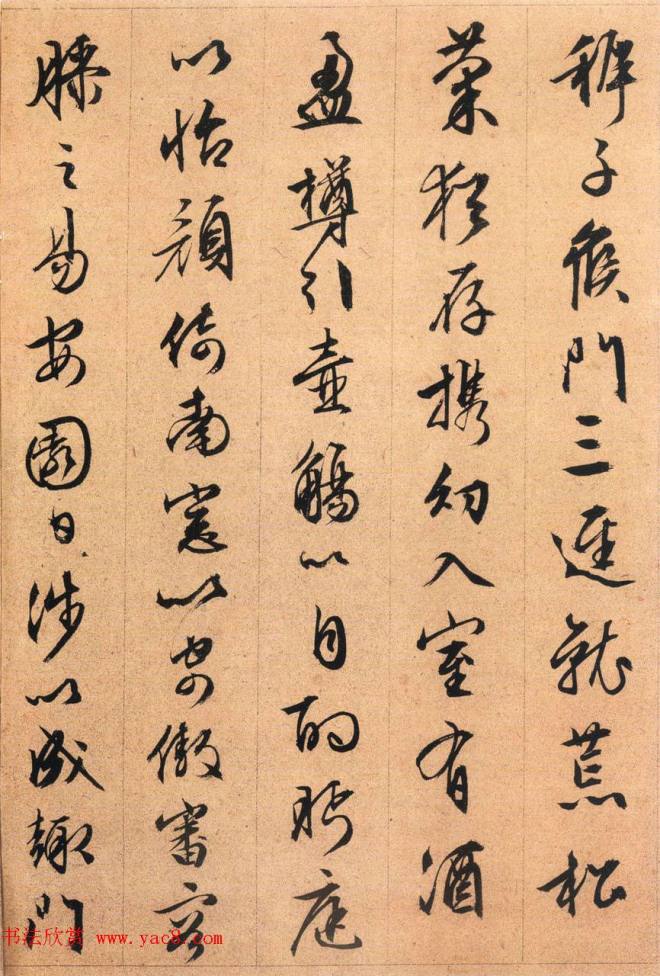 稚子候門三逕就荒松
菊猶存携幼入室有酒
盈樽引壺觴以自酌眄庭
以怡顏倚南窓以寄傲審容
膝之易安園日涉以成趣門
书法欣赏 www.yac8.com